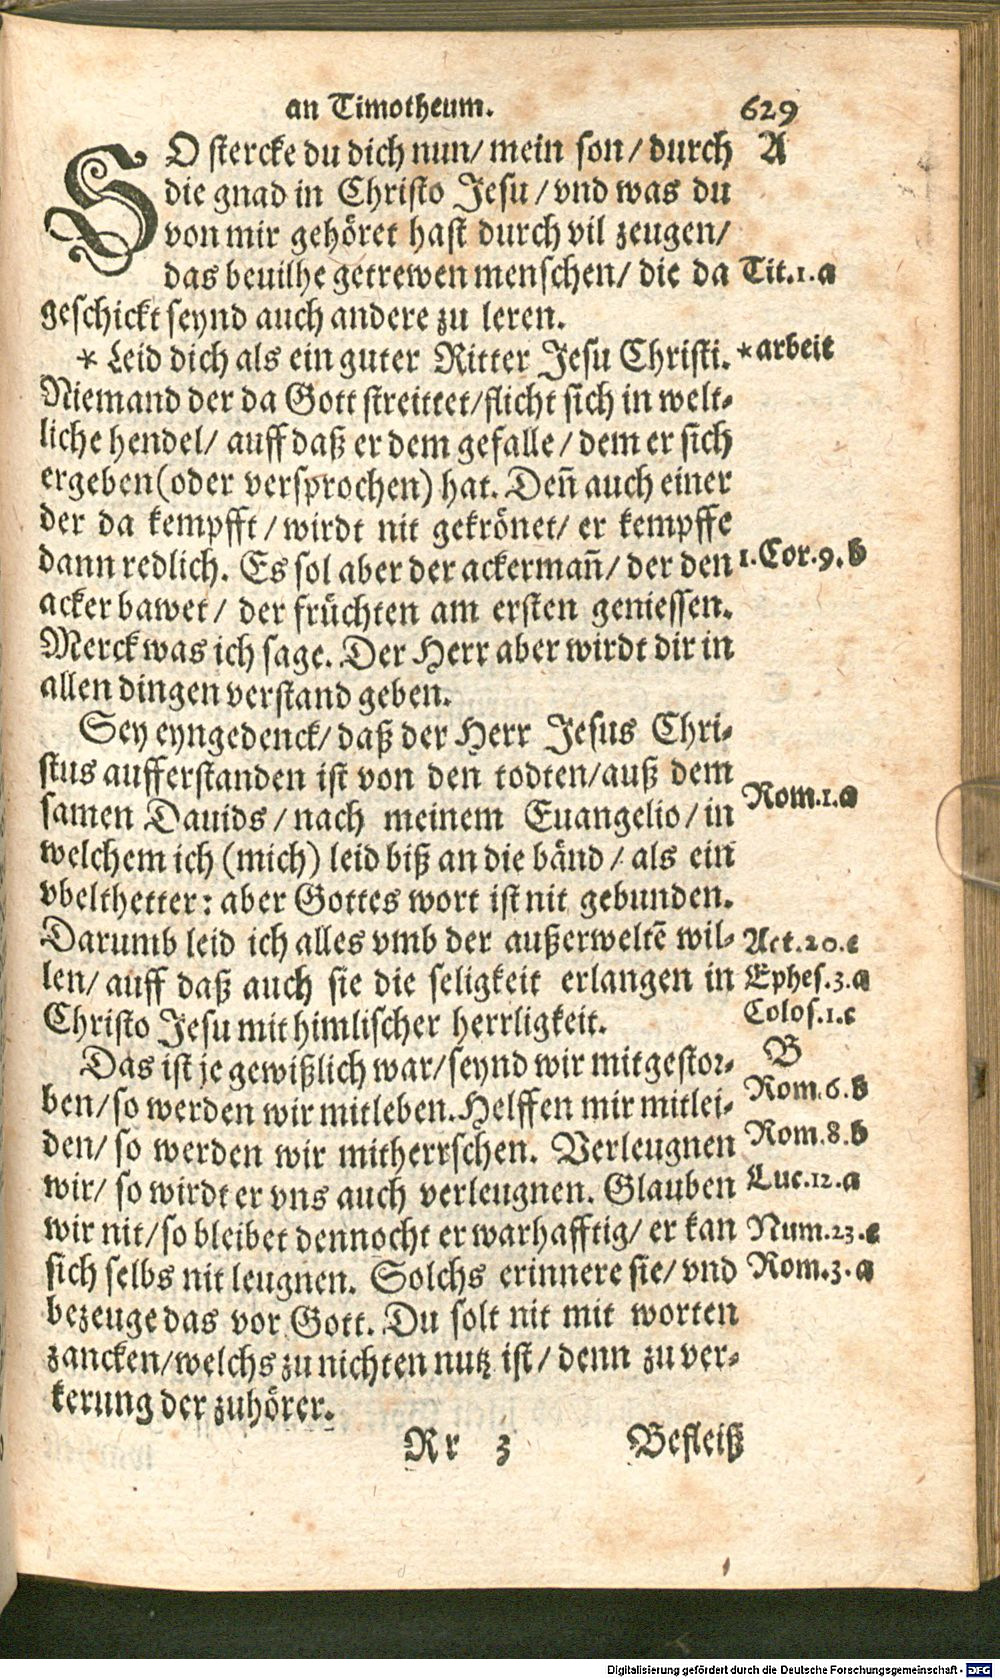 an Timotheum. 629
SO stercke du dich nun/ mein son/ durch A
die gnad in Christo Jesu/ vnd was du
von mir gehöret hast durch vil zeugen/
das beuilhe getrewen menschen/ die da Tit.1.a
geschickt seynd auch andere zu leren.
* Leid dich als ein guter Ritter Jesu Christi. *arbeit
Niemand der da Gott streittet/ flicht sich in welt-
liche hendel/ auff daß er dem gefalle/ dem er sich
ergeben (oder versprochen) hat. Deñ auch einer
der da kempfft/ wirdt nit gekrönet/ er kempffe
dann redlich. Es sol aber der ackermañ/ der den 1.Cor.9.b
acker bawet/ der früchten am ersten geniessen.
Merck was ich sage. Der Herr aber wirdt dir in
allen dingen verstand geben.
Sey eyngedenck/ daß der Herr Jesus Chri-
stus aufferstanden ist von den todten/ auß dem
samen Dauids/ nach meinem Euangelio/ in Rom.1.a
welchem ich (mich) leid biß an die bänd/ als ein
vbelthetter: aber Gottes wort ist nit gebunden.
Darumb leid ich alles vmb der außerweltẽ wil- Act.20.e
len/ auff daß auch sie die seligkeit erlangen in Ephes.3.a
Christo Jesu mit himlischer herrligkeit. Colos.1.c
Das ist je gewißlich war/ seynd wir mitgestor- B
ben/ so werden wir mitleben. Helffen mir mitlei- Rom.6.b
den/ so werden wir mitherrschen. Verleugnen Rom.8.b
wir/ so wirdt er vns auch verleugnen. Glauben Luc.12.a
wir nit/ so bleibet dennocht er warhafftig/ er kan Num.23.e
sich selbs nit leugnen. Solchs erinnere sie/ vnd Rom.3.a
bezeuge das vor Gott. Du solt nit mit worten
zancken/ welchs zu nichten nutz ist/ denn zu ver-
kerung der zuhörer.
Rr 3 Befleiß
Digitalisierung gefördert durch die Deutsche Forschungsgemeinschaft - DFG